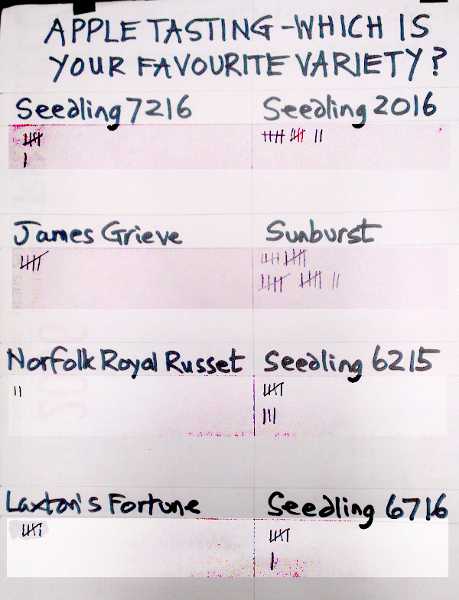 APPLE TASTING - WHICH IS
YOUR FAVOURITE VARIETY?
Seedling 7216
Seedling 2016
James Grieve
Sunburst
Norfolk Royal Russet
Seedling 6215
Laxton's Fortune
Seedling 6716